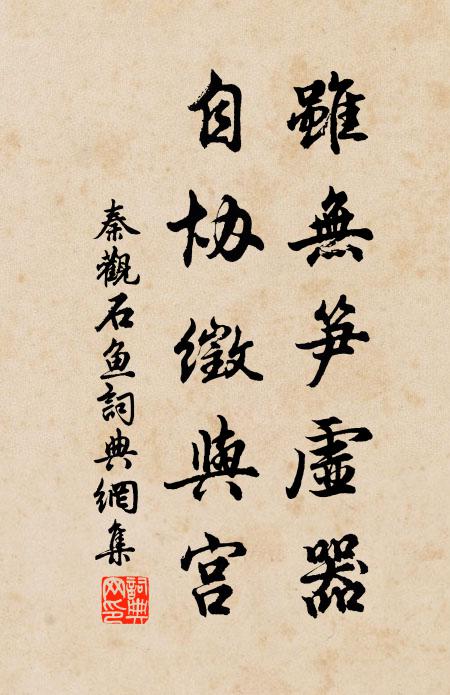 雖無笋虚器
自协徵與宮
秦觀石鱼詞典網集
詞典网印